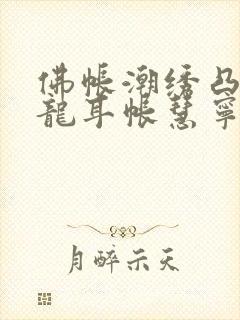 佛帳潮绣凸
龍耳帐慧寧
月醉示天